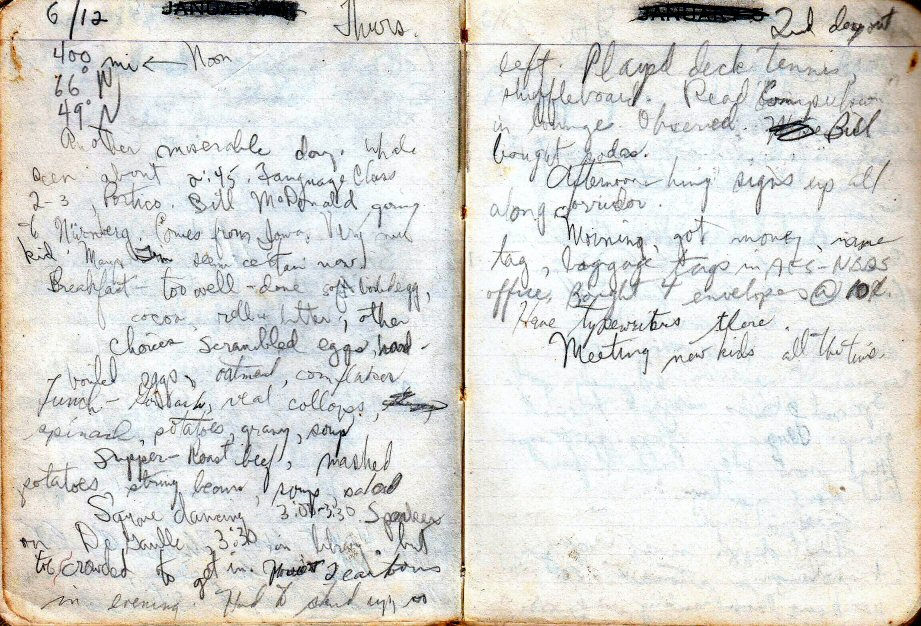 6/12 Thurs.
400 mi ← Noon
66° N
49° N
Another miserable day. Whale
seen about 2:45. Language Class
2-3, Portico. Bill McDonald going
to Nürnberg. Comes from Iowa. Very nice
kid. Many now.
Breakfast - too well-done soft boiled egg,
cocoa, roll & butter, other
choices scrambled eggs, hard-
boiled eggs, oatmeal, cornflakes
Lunch - veal collops,
spinach, potatoes, gravy, soup
Supper - Roast beef, mashed
potatoes, string beans, soup, salad
Square dancing 3:00-3:30. Speaker
on De Gaulle, 3:30 in but
too crowded to get in. 2 cartoons
in evening. Had to stand up, so
JANUARY 3
2nd day out
left. Played deck tennis,
shuffleboard. Read "Compulsion"
in lounge. Observed. Bill
bought sodas.
Afternoon - hung signs up all
along corridor.
Morning, got money, name
tag, luggage tags in AFS-NSAS
office. Bought 4 envelopes @ 10¢.
Have typewriters there.
Meeting new kids all the time.